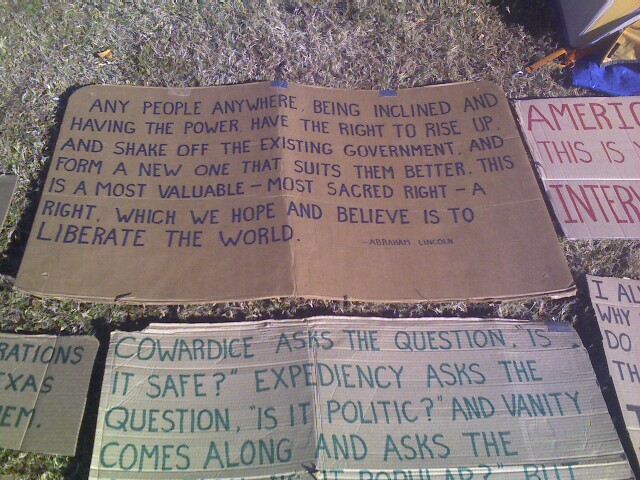 ANY PEOPLE ANYWHERE, BEING INCLINED AND
HAVING THE POWER, HAVE THE RIGHT TO RISE UP,
AND SHAKE OFF THE EXISTING GOVERNMENT, AND
FORM A NEW ONE THAT SUITS THEM BETTER. THIS
IS A MOST VALUABLE - MOST SACRED RIGHT - A
RIGHT, WHICH WE HOPE AND BELIEVE IS TO
LIBERATE THE WORLD.
-ABRAHAM LINCOLN
AMERI
THIS IS
INTER
COWARDICE ASKS THE QUESTION, IS
IT SAFE?" EXPEDIENCY ASKS THE
QUESTION, "IS IT POLITIC?" AND VANITY
COMES ALONG AND ASKS THE
"IS IT POPULAR?" BUT
RATIONS
EXAS
EM.
I AL
WHY
DO
TH